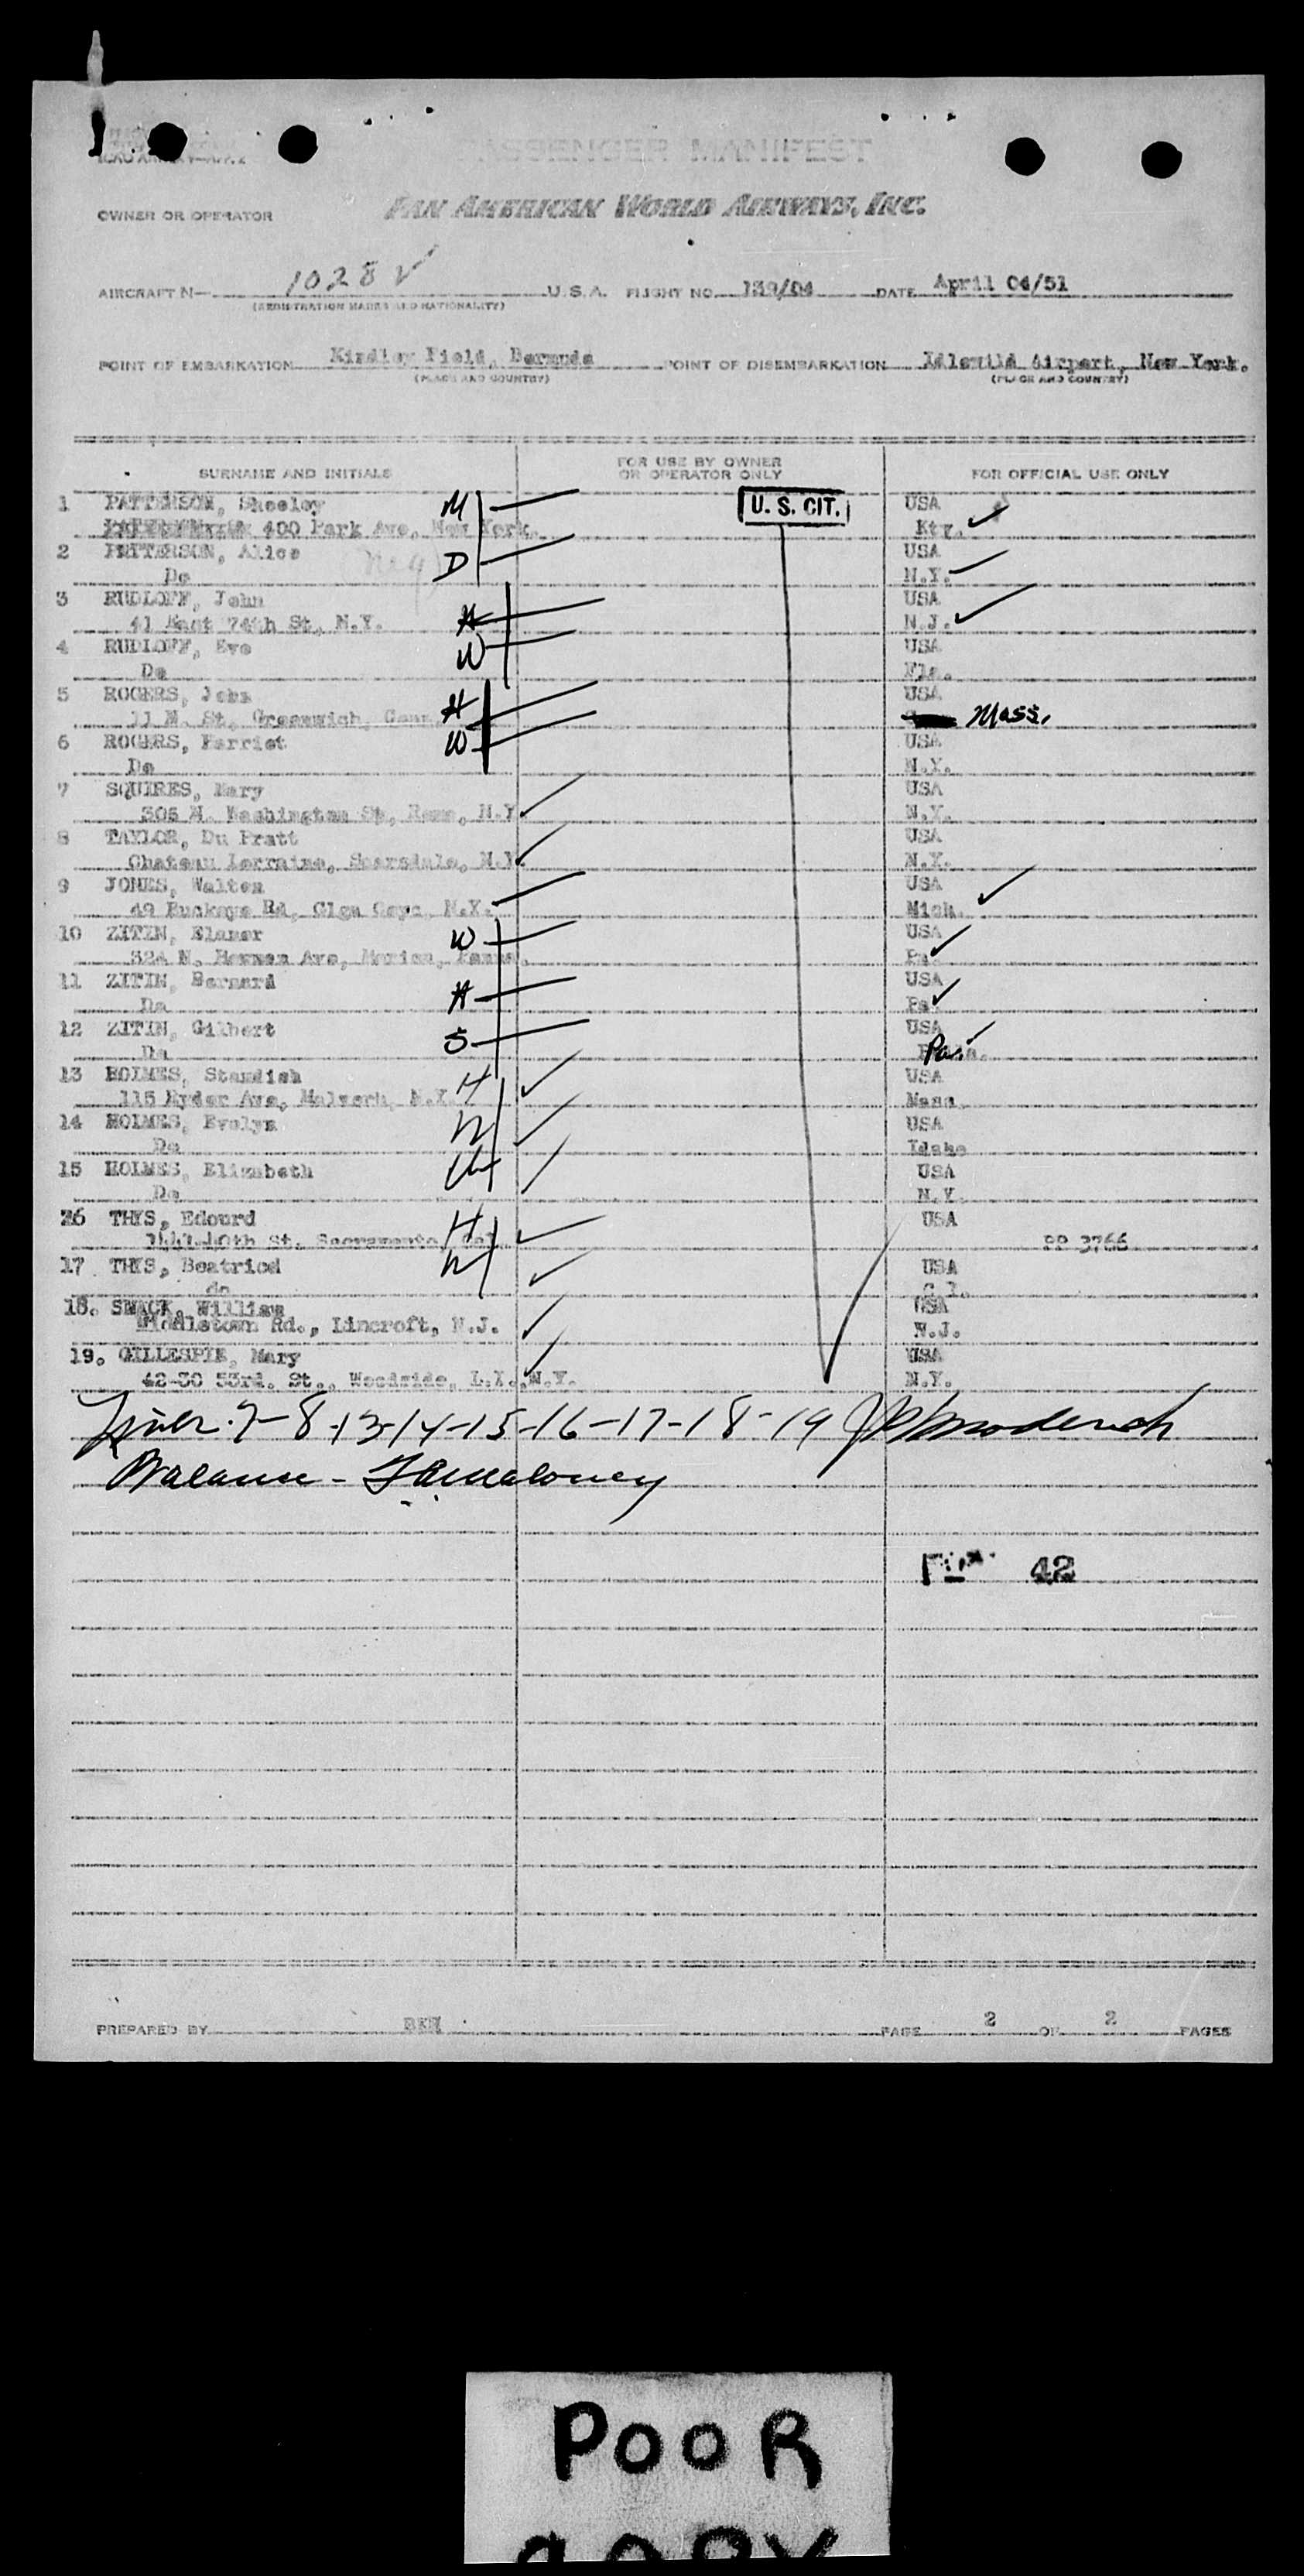 PASSENGER MANIFEST
OWNER OR OPERATOR PAN AMERICAN WORLD AIRWAYS, INC.
AIRCRAFT N— 1028V U.S.A. FLIGHT NO. 139/04 DATE April 04/51
(REGISTRATION MARKS AND NATIONALITY)
POINT OF EMBARKATION Kindley Field, Bermuda POINT OF DISEMBARKATION Idlewild Airport, New York.
(PLACE AND COUNTRY) (PLACE AND COUNTRY)
SURNAME AND INITIALS FOR USE BY OWNER OR OPERATOR ONLY FOR OFFICIAL USE ONLY
1 PATTERSON, Sheeley M U. S. CIT. USA
400 Park Ave, New York. Kty.
2 PATTERSON, Alice D USA
Do N.Y.
3 RUDLOFF, John H USA
41 East 74th St, N.Y. N.J.
4 RUDLOFF, Eve W USA
Do Fla.
5 ROGERS, John H USA
11 N. St, Greenwich, Conn. Mass.
6 ROGERS, Harriet W USA
Do N.Y.
7 SQUIRES, Mary USA
305 N. Washington St, Rome, N.Y. N.Y.
8 TAYLOR, Du Pratt USA
Chateau Lorraine, Scarsdale, N.Y. N.Y.
9 JONES, Walter USA
49 Buckeye Rd, Glen Cove, N.Y. Mich.
10 ZITIN, Elanor W USA
324 N. Bowman Ave, Merion, Penna. Pa.
11 ZITIN, Bernard H USA
Do Pa.
12 ZITIN, Gilbert S USA
Do Pa.
13 HOLMES, Standish H USA
115 Ryder Ave, Malvern, N.Y. Mass.
14 HOLMES, Evelyn W USA
Do Idaho
15 HOLMES, Elizabeth USA
Do N.Y.
16 THYS, Edourd H USA
40th St, Sacramento, Cal. PP 3766
17 THYS, Beatrice W USA
do
18. SMACK, William USA
Middletown Rd., Lincroft, N.J. N.J.
19. GILLESPIE, Mary USA
42-30 53rd. St., Woodside, L.I., N.Y. N.Y.
7-8-13-14-15-16-17-18-19
Balance -
42
PREPARED BY BEN PAGE 2 OF 2 PAGES
POOR
COPY